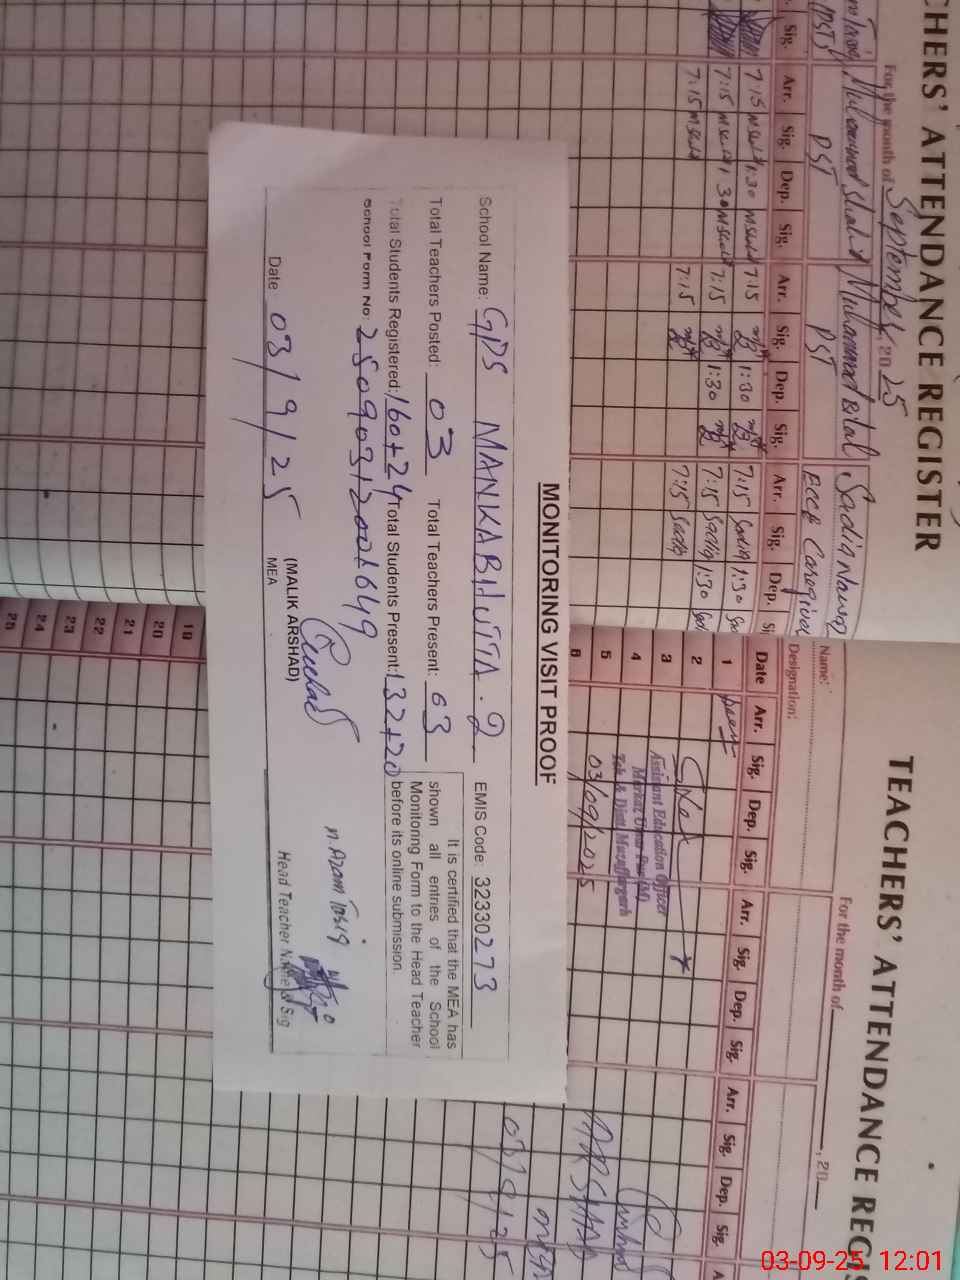 TEACHERS' ATTENDANCE REGISTER
For the month of September, 2025
Muhammad Bilal Sadia Nawaz
PST PST ECCE Caregiver
Sig. Arr. Sig. Dep. Sig. Arr. Sig. Dep. Sig. Arr. Sig. Dep.
7:15 1:30 7:15 1:30 7:15 Sadia 1:30
7:15 1:30 7:15 1:30 7:15 Sadia 1:30
7:15 7:15 7:15 Sadia
TEACHERS' ATTENDANCE REGI
For the month of , 20
Name:
Designation:
Date Arr. Sig. Dep. Sig. Arr. Sig. Dep. Sig. Arr. Sig. Dep. Sig. A
1
2
3
4
5
6
Assistant Education Officer
Teh & Distt Muzaffargarh
03/09/2025
ARSHAD
MEA
03/9/25
MONITORING VISIT PROOF
School Name: GPS MANKABHUTTA.2 EMIS Code: 32330273
Total Teachers Posted: 03 Total Teachers Present: 03
Total Students Registered: 160+24 Total Students Present: 132+20
School Form No: 25090312001649
It is certified that the MEA has
shown all entries of the School
Monitoring Form to the Head Teacher
before its online submission.
Date 03/9/25
(MALIK ARSHAD)
MEA
M. Azam Tariq
Head Teacher Name & Sig
19
20
21
22
23
24
25
03-09-25 12:01